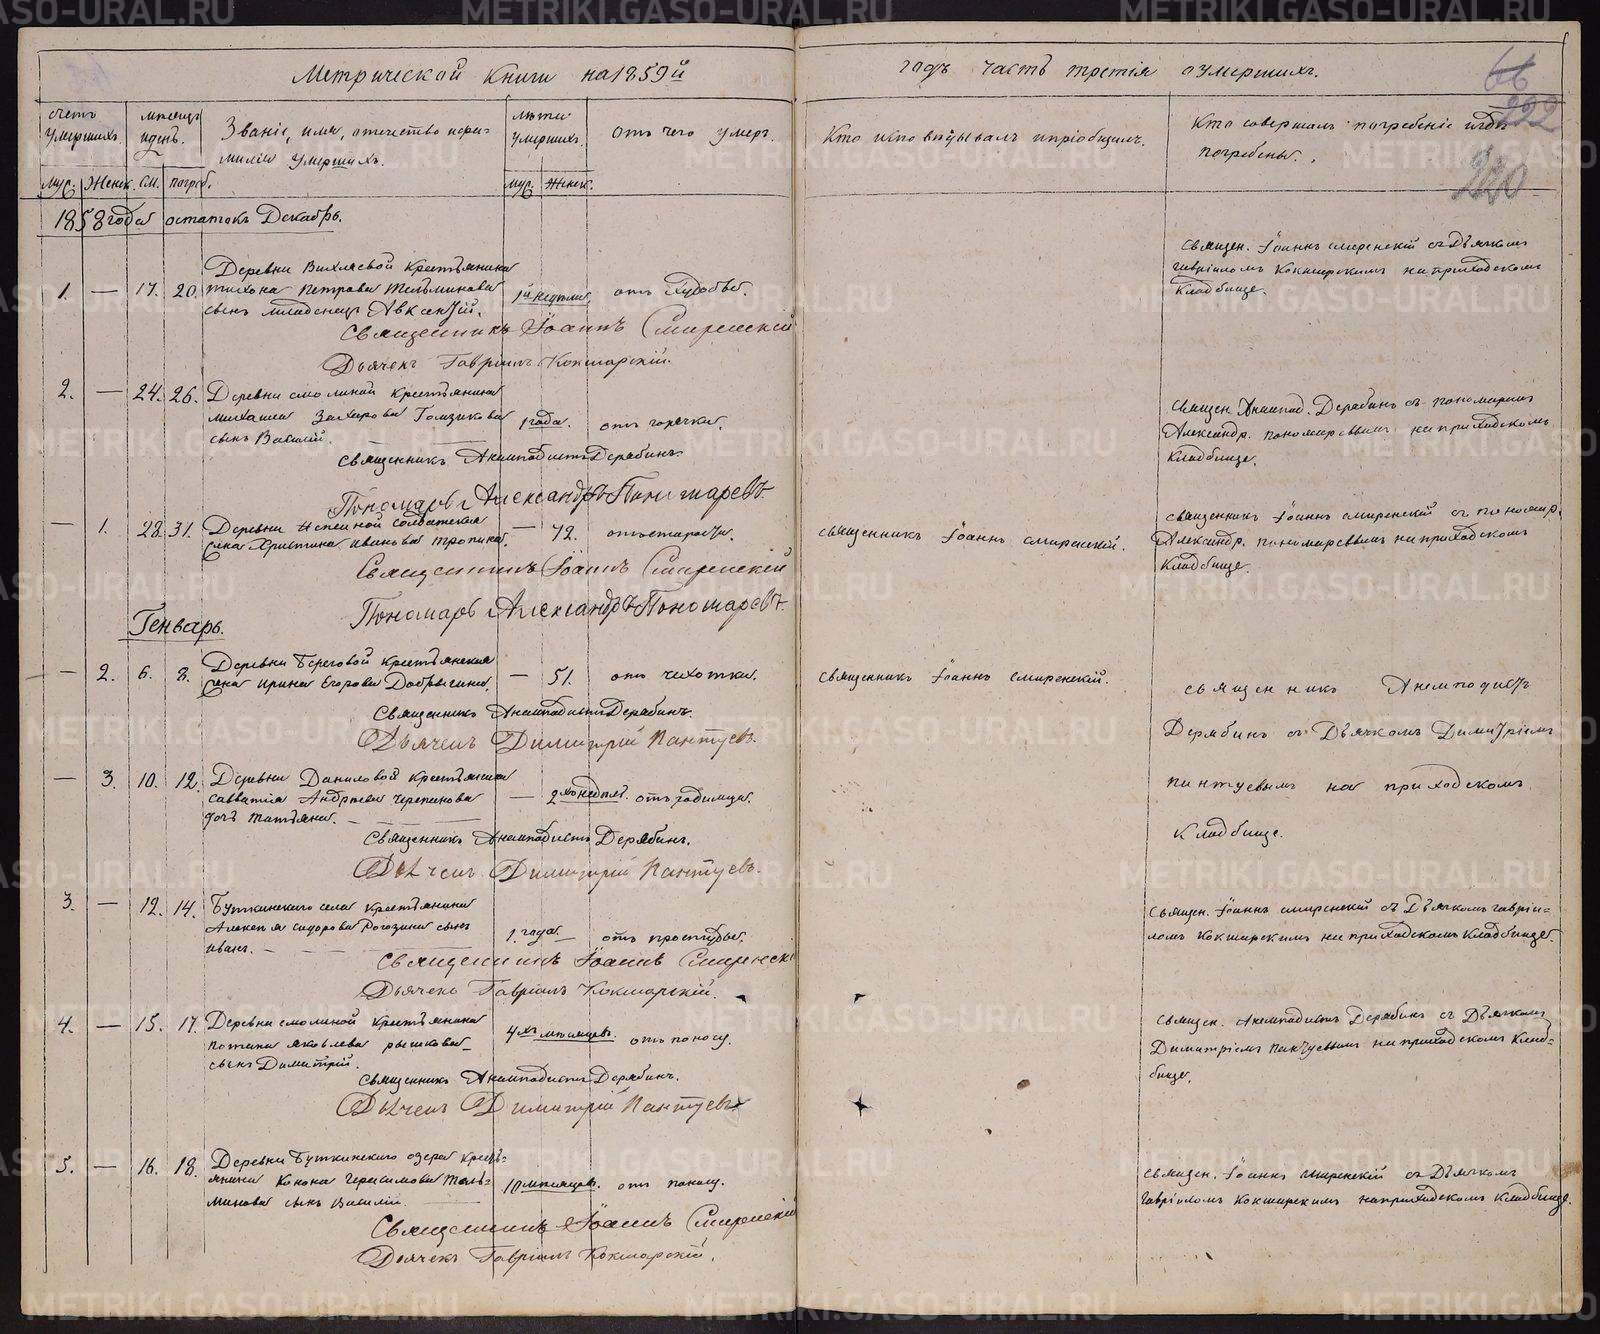 Метрической книги на 1859й
годъ часть третія о умершихъ.
66
222
220
счетъ умершихъ.
мѣсяцъ и день.
Званіе, имя, отчество и фамилія умершихъ.
лѣта умершихъ.
отъ чего умеръ.
Кто исповѣдывалъ и пріобщалъ.
Кто совершалъ погребеніе и гдѣ погребены.
муж. Женск. См. погреб.
муж. Женск.
1858 года остатокъ Декабрь.
Деревни Вихляевой крестьянина
1. — 17. 20. Тихона Петрова Тельминова 1й недѣли отъ худобы.
сынъ младенецъ Авксентій.
Священ. Іоаннъ Смиренскій съ Дьячкомъ
Гавріиломъ Кокшарскимъ на приходскомъ
Кладбище.
Священникъ Іоаннъ Смиренскій
Дьячекъ Гавріилъ Кокшарскій.
2. — 24. 26. Деревни Смолиной крестьянина
Михаила Захарова Гомзикова 1 года. отъ горячки.
сынъ Василій.
Священ. Анемпод. Дерябинъ съ пономаремъ
Александр. Пономаревымъ на приходскомъ
Кладбище.
Священникъ Анемподистъ Дерябинъ.
Пономарь Александръ Пономаревъ.
— 1. 28. 31. Деревни солдатская — 72. отъ старости.
жена Христина Иванова Тропина.
Священникъ Іоаннъ Смиренскій.
Священникъ Іоаннъ Смиренскій съ пономар.
Александр. Пономаревымъ на приходскомъ
Кладбище.
Священникъ Іоаннъ Смиренскій
Пономарь Александръ Пономаревъ.
Генварь.
— 2. 6. 8. Деревни Береговой крестьянская — 51. отъ чахотки.
жена Ирина Егорова Добрыгина.
Священникъ Іоаннъ Смиренскій.
Священникъ Анемподистъ
Дерябинъ съ Дьячкомъ Димитріемъ
Пантуевымъ на приходскомъ
Кладбище.
Священникъ Анемподистъ Дерябинъ.
Дьячекъ Димитрій Пантуевъ.
— 3. 10. 12. Деревни Даниловой крестьянина
Савватія Андреева Черепанова — 2хъ недѣль. отъ родимца.
дочь Татьяна.
Священникъ Анемподистъ Дерябинъ.
Дьячекъ Димитрій Пантуевъ.
3. — 12. 14. Буткинскаго села крестьянина
Алексѣя Сидорова Рогозина сынъ 1. года — отъ простуды.
Иванъ.
Священ. Іоаннъ Смиренскій съ Дьячкомъ Гавріи=
ломъ Кокшарскимъ на приходскомъ Кладбище.
Священникъ Іоаннъ Смиренскі
Дьячекъ Гавріилъ Кокшарскій.
4. — 15. 17. Деревни Смолиной крестьянина
Потапа Яковлева Рышкова 4хъ мѣсяцевъ. отъ поносу.
сынъ Димитрій.
Священ. Анемподистъ Дерябинъ съ Дьячкомъ
Димитріемъ Пантуевымъ на приходскомъ Клад=
бище.
Священникъ Анемподистъ Дерябинъ.
Дьячекъ Димитрій Пантуевъ
5. — 16. 18. Деревни Буткинскаго озера кресть=
янина Конона Герасимова Тель= 10 мѣсяцевъ. отъ поносу.
минова сынъ Василій
Священ. Іоаннъ Смиренскій съ Дьячкомъ
Гавріиломъ Кокшарскимъ на приходскомъ Кладбище.
Священникъ Іоаннъ Смиренскій
Дьячекъ Гавріилъ Кокшарскій.
METRIKI.GASO-URAL.RU